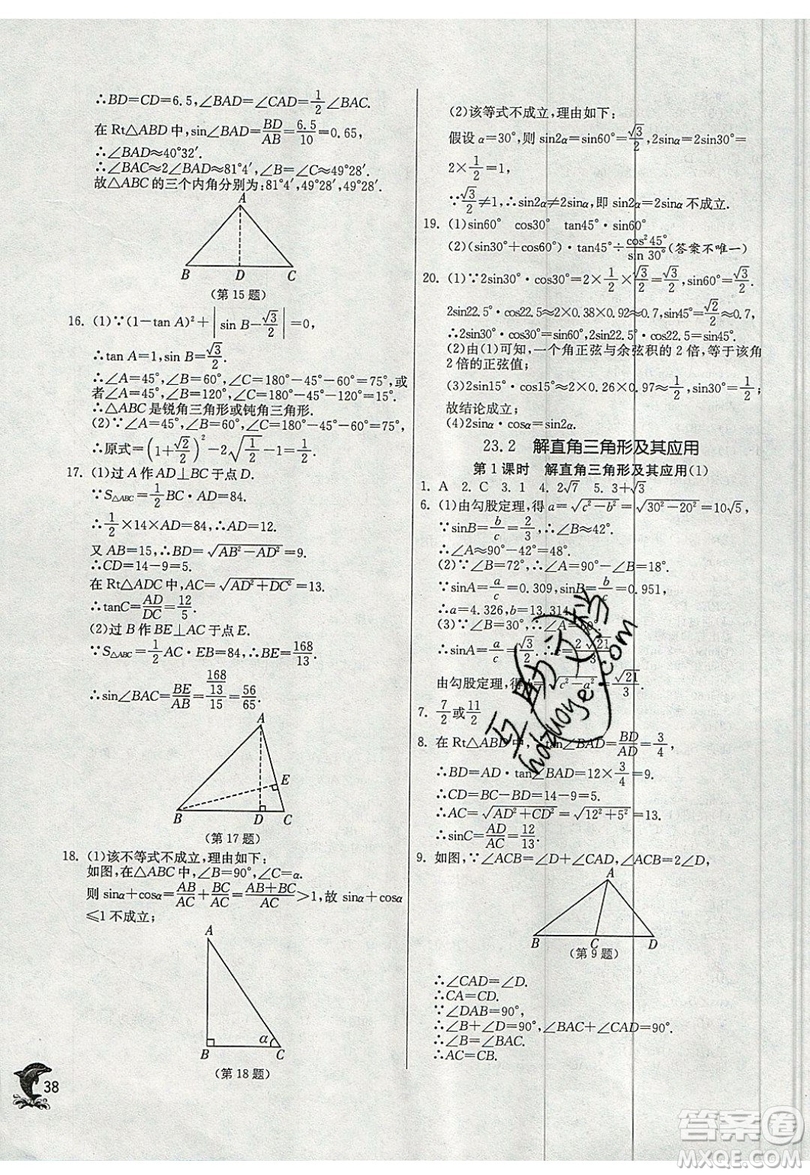 ∴BD=CD=6.5,∠BAD=∠CAD=1/2∠BAC.
在 Rt△ABD 中,sin∠BAD=BD/AB=6.5/10=0.65,
∴∠BAD≈40°32′.
∴∠BAC≈2∠BAD≈81°4′,∠ABC≈49°28′.
故△ABC 的三个内角分别为:81°4′,49°28′,49°28′.
A
B D C
(第 15 题)
16. (1)∵(1-tan A)²+|sin B-√3/2|=0,
∴tan A=1,sin B=√3/2.
∴∠A=45°,∠B=60°,∠C=180°-45°-60°=75°,或
者∠A=45°,∠B=120°,∠C=180°-45°-120°=15°.
∴△ABC 是锐角三角形或钝角三角形.
(2)∵∠A=45°,∠B=60°,∠C=180°-45°-60°=75°,
∴原式=(1+√2/2)²-2√(1+√2)
17. (1)过 A 作 AD⊥BC 于点 D.
∵S△ABC=1/2BC·AD=84,
∴1/2×14×AD=84,∴AD=12.
又 AB=15,∴BD=√(AB²-AD²)=9.
∴CD=14-9=5.
在 Rt△ADC 中,AC=√(AD²+DC²)=13.
∴tanC=AD/DC=12/5.
(2)过 B 作 BE⊥AC 于点 E.
∵S△ABC=1/2AC·EB=84,∴BE=168/13.
∴sin∠BAC=BE/AB=(168/13)/15=56/65.
A
E
B D C
(第 17 题)
18. (1)该不等式不成立,理由如下:
如图,在△ABC 中,∠B=90°,∠C=α.
则 sinα+cosα=AB/AC+BC/AC=(AB+BC)/AC>1,故 sinα+cosα
≤1 不成立;
A
B α C
(第 18 题)
38
(2)该等式不成立,理由如下:
假设 α=30°,则 sin2α=sin60°=√3/2,2sinα=2sin30°=
2×1/2=1,
∵√3/2≠1,∴sin2α≠2sinα,即 sin2α 不成立.
19. (1)sin60° cos30° tan45°·sin60°
(2)(sin30°+cos60°)·tan45°÷cos²45°/sin 30°(答案不唯一)
20. (1)∵2sin30°·cos30°=2×1/2×√3/2=√3/2,sin60°=√3/2.
2sin22.5°·cos22.5≈2×0.38×0.92≈0.7,sin45°=√2/2≈0.7,
∴2sin30°·cos30°=sin60°,2sin22.5°·cos22.5=sin45°;
(2)由(1)可知,一个角正弦与余弦积的 2 倍,等于该角
2 倍的正弦值;
(3)2sin15°·cos15°≈2×0.26×0.97≈1/2,sin30°=1/2;
故结论成立;
(4)2sinα·cosα=sin2α.
23.2 解直角三角形及其应用
第 1 课时 解直角三角形及其应用(1)
1. A 2. C 3. 1 4. 2√7 5. 3+√3
6. (1)由勾股定理,得 a=√(c²-b²)=√(30²-20²)=10√5,
∵sinB=b/c=2/3,∴∠B≈42°.
∴∠A≈90°-42°=48°.
(2)∵∠B=72°,∴∠A=90°-∠B=18°.
∵sinA=a/c=0.309,sinB=b/c=0.951,
∴a=4.326,b=13.314
(3)∵∠B=30°,∴∠A=60°.
sinA=
由勾股定理,得 b=√(c²-a²)=√21/3.
7. 7/2或11/2
8. 在 Rt△ABD 中,tan∠BAD=BD/AD=3/4,
∴BD=AD·tan∠BAD=12×3/4=9.
∴CD=BC-BD=14-9=5.
∴AC=√(AD²+CD²)=√(12²+5²)=13.
∴sinC=AD/AC=12/13.
9. 如图,∵∠ACB=∠D+∠CAD,∠ACB=2∠D,
A
B C D
(第 9 题)
∴∠CAD=∠D.
∴CA=CD.
∵∠DAB=90°,
∴∠B+∠D=90°,∠BAC+∠CAD=90°.
∴∠B=∠BAC.
∴AC=CB.
互助文档
hdzuoye.com
答案圈
MXQE.COM